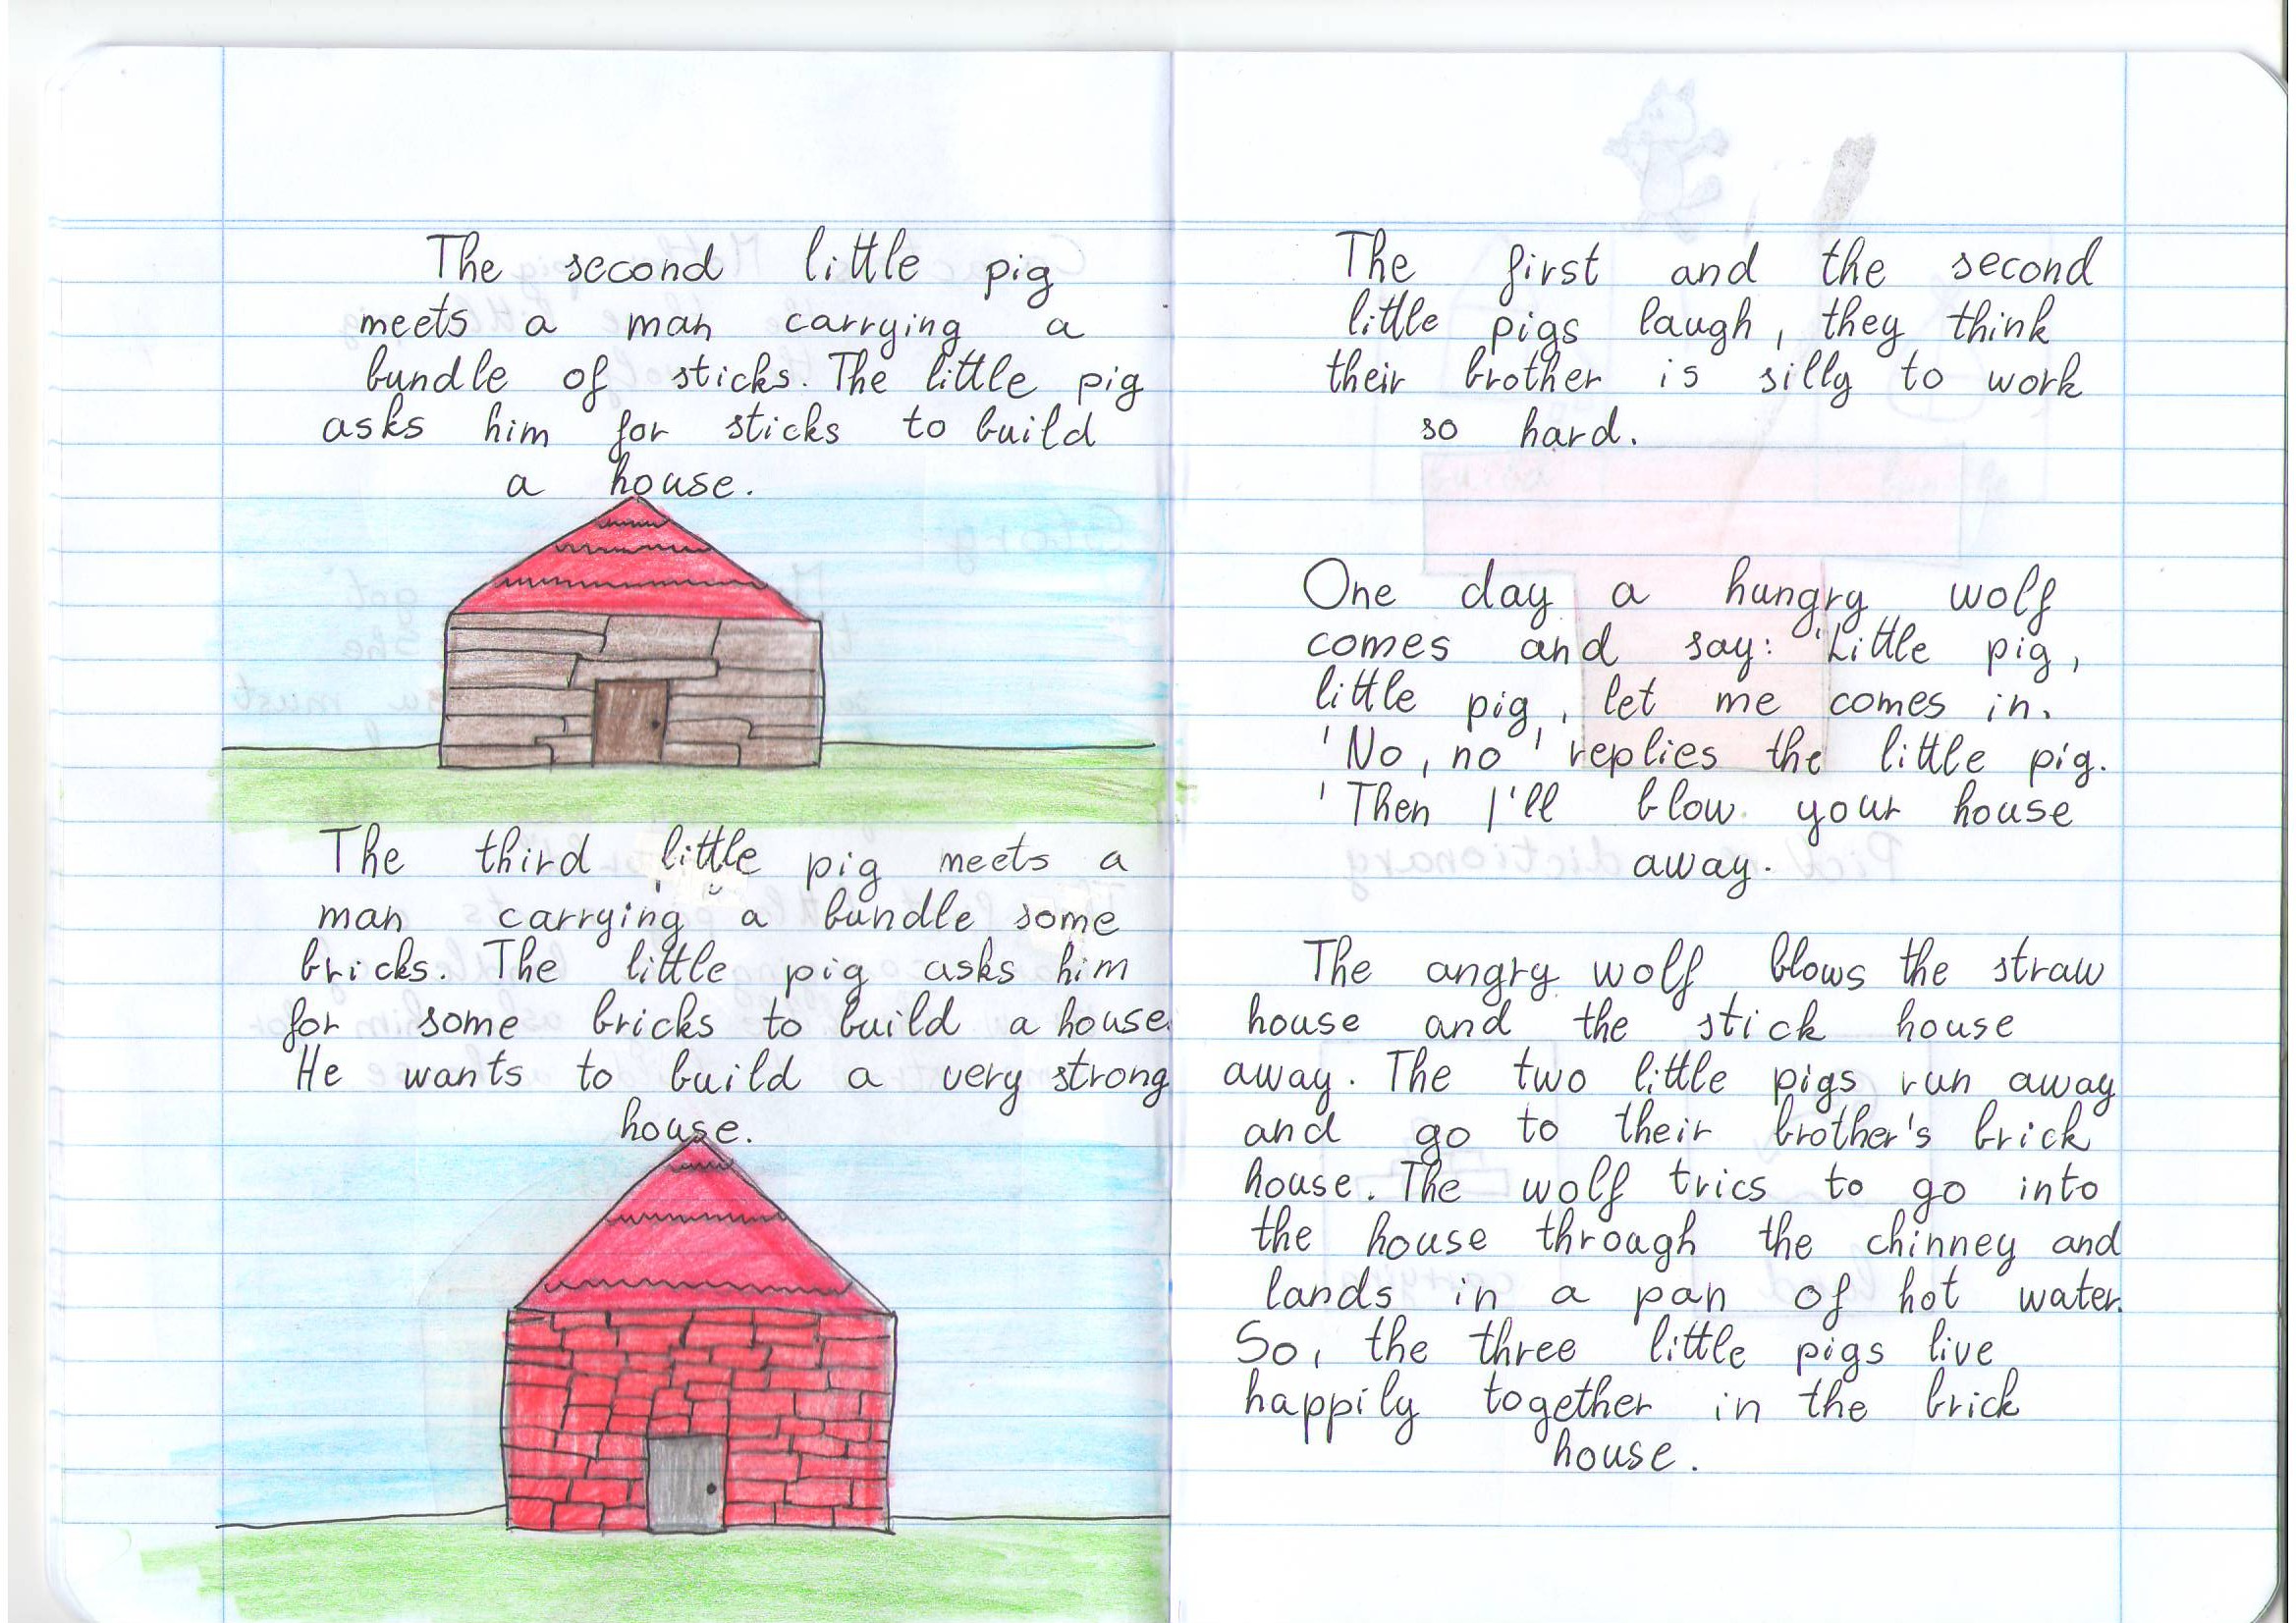 The second little pig
meets a man carrying a
bundle of sticks. The little pig
asks him for sticks to build
a house.
The third little pig meets a
man carrying a bundle some
bricks. The little pig asks him
for some bricks to build a house.
He wants to build a very strong
house.
The first and the second
little pigs laugh, they think
their brother is silly to work
so hard.
One day a hungry wolf
comes and say: 'Little pig,
little pig, let me comes in.
'No, no' replies the little pig.
'Then I'll blow your house
away.
The angry wolf blows the straw
house and the stick house
away. The two little pigs run away
and go to their brother's brick
house. The wolf tries to go into
the house through the chinney and
lands in a pan of hot water.
So, the three little pigs live
happily together in the brick
house.